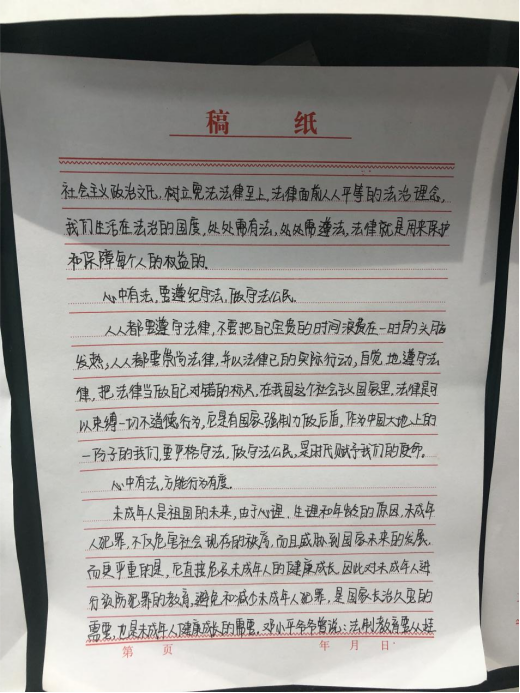 稿 纸
社会主义政治文化,树立宪法法律至上,法律面前人人平等的法治理念。
我们生活在法治的国度,处处需有法,处处需遵法,法律就是用来保护
和保障每个人的权益的。
心中有法,要遵纪守法,做守法公民。
人人都要遵守法律,不要把自己宝贵的时间浪费在一时的头脑
发热,人人都要崇尚法律,并以法律己的实际行动,自觉地遵守法
律,把法律当做自己对错的标尺,在我国这个社会主义国家里,法律是可
以束缚一切不道德行为,它是有国家强制力做后盾,作为中国大地上的
一份子的我们,要严格守法,做守法公民,是时代赋予我们的使命。
心中有法,方能行为有度。
未成年人是祖国的未来,由于心理、生理和年龄的原因,未成年
人犯罪,不仅危害社会现存的秩序,而且威胁到国家未来的发展,
而更严重的是,它直接危及未成年人的健康成长。因此对未成年人进
行预防犯罪的教育,避免和减少未成年人犯罪,是国家长治久安的
需要,也是未成年人健康成长的需要。邓小平爷爷曾说:法制教育要从娃
第 页 年 月 日